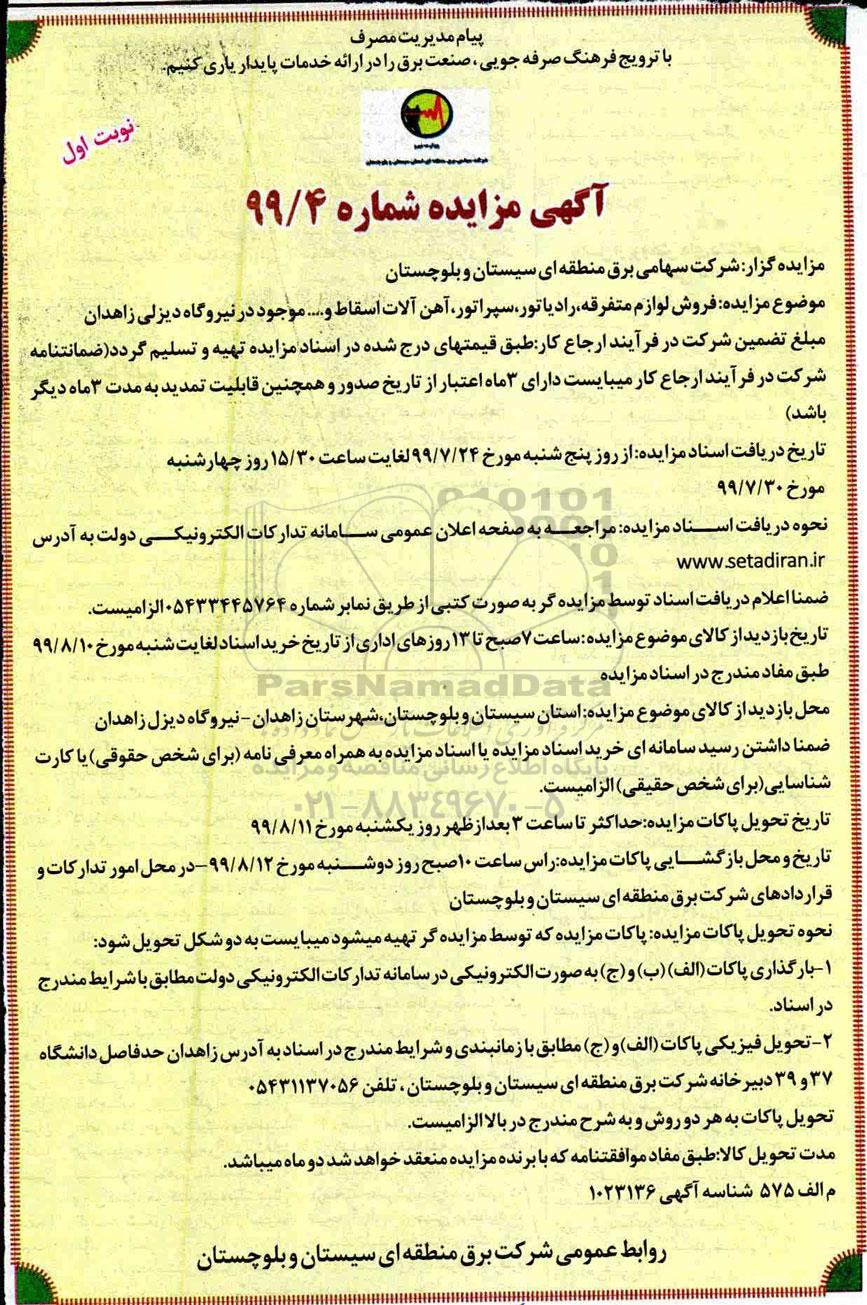 پیام مدیریت مصرف
با ترویج فرهنگ صرفه جویی، صنعت برق را در ارائه خدمات پایدار یاری کنیم.
نوبت اول
آگهی مزایده شماره ۹۹/۴
مزایده گزار: شرکت سهامی برق منطقه ای سیستان و بلوچستان
موضوع مزایده: فروش لوازم متفرقه، رادیاتور، سپراتور، آهن آلات اسقاط و.... موجود در نیروگاه دیزلی زاهدان
مبلغ تضمین شرکت در فرآیند ارجاع کار: طبق قیمتهای درج شده در اسناد مزایده تهیه و تسلیم گردد(ضمانتنامه
شرکت در فرآیند ارجاع کار میبایست دارای ۳ماه اعتبار از تاریخ صدور و همچنین قابلیت تمدید به مدت ۳ماه دیگر
باشد)
تاریخ دریافت اسناد مزایده: از روز پنج شنبه مورخ ۹۹/۷/۲۴ لغایت ساعت ۱۵/۳۰ روز چهارشنبه
مورخ ۹۹/۷/۳۰
نحوه دریافت اسناد مزایده: مراجعه به صفحه اعلان عمومی سامانه تدارکات الکترونیکی دولت به آدرس
www.setadiran.ir
ضمنا اعلام دریافت اسناد توسط مزایده گر به صورت کتبی از طریق نمابر شماره ۰۵۴۳۳۴۴۵۷۶۴ الزامیست.
تاریخ بازدید از کالای موضوع مزایده: ساعت ۷صبح تا ۱۳ روزهای اداری از تاریخ خرید اسناد لغایت شنبه مورخ ۹۹/۸/۱۰
طبق مفاد مندرج در اسناد مزایده
محل بازدید از کالای موضوع مزایده: استان سیستان و بلوچستان، شهرستان زاهدان - نیروگاه دیزل زاهدان
ضمنا داشتن رسید سامانه ای خرید اسناد مزایده یا اسناد مزایده به همراه معرفی نامه (برای شخص حقوقی) یا کارت
شناسایی(برای شخص حقیقی) الزامیست.
تاریخ تحویل پاکات مزایده: حداکثر تا ساعت ۳ بعدازظهر روز یکشنبه مورخ ۹۹/۸/۱۱
تاریخ و محل بازگشایی پاکات مزایده: راس ساعت ۱۰صبح روز دوشنبه مورخ ۹۹/۸/۱۲-در محل امور تدارکات و
قراردادهای شرکت برق منطقه ای سیستان و بلوچستان
نحوه تحویل پاکات مزایده: پاکات مزایده که توسط مزایده گر تهیه میشود میبایست به دو شکل تحویل شود:
۱-بارگذاری پاکات (الف) (ب) و (ج) به صورت الکترونیکی در سامانه تدارکات الکترونیکی دولت مطابق با شرایط مندرج
در اسناد.
۲-تحویل فیزیکی پاکات (الف) و (ج) مطابق با زمانبندی و شرایط مندرج در اسناد به آدرس زاهدان حدفاصل دانشگاه
۳۷ و ۳۹ دبیرخانه شرکت برق منطقه ای سیستان و بلوچستان، تلفن ۰۵۴۳۱۱۳۷۰۵۶
تحویل پاکات به هر دو روش و به شرح مندرج در بالا الزامیست.
مدت تحویل کالا: طبق مفاد موافقتنامه که با برنده مزایده منعقد خواهد شد دو ماه میباشد.
م الف ۵۷۵ شناسه آگهی ۱۰۲۳۱۳۶
روابط عمومی شرکت برق منطقه ای سیستان و بلوچستان
ParsNamadData
پایگاه اطلاع رسانی مناقصه و مزایده
۰۲۱-۸۸۳۴۹۶۷۰-۵